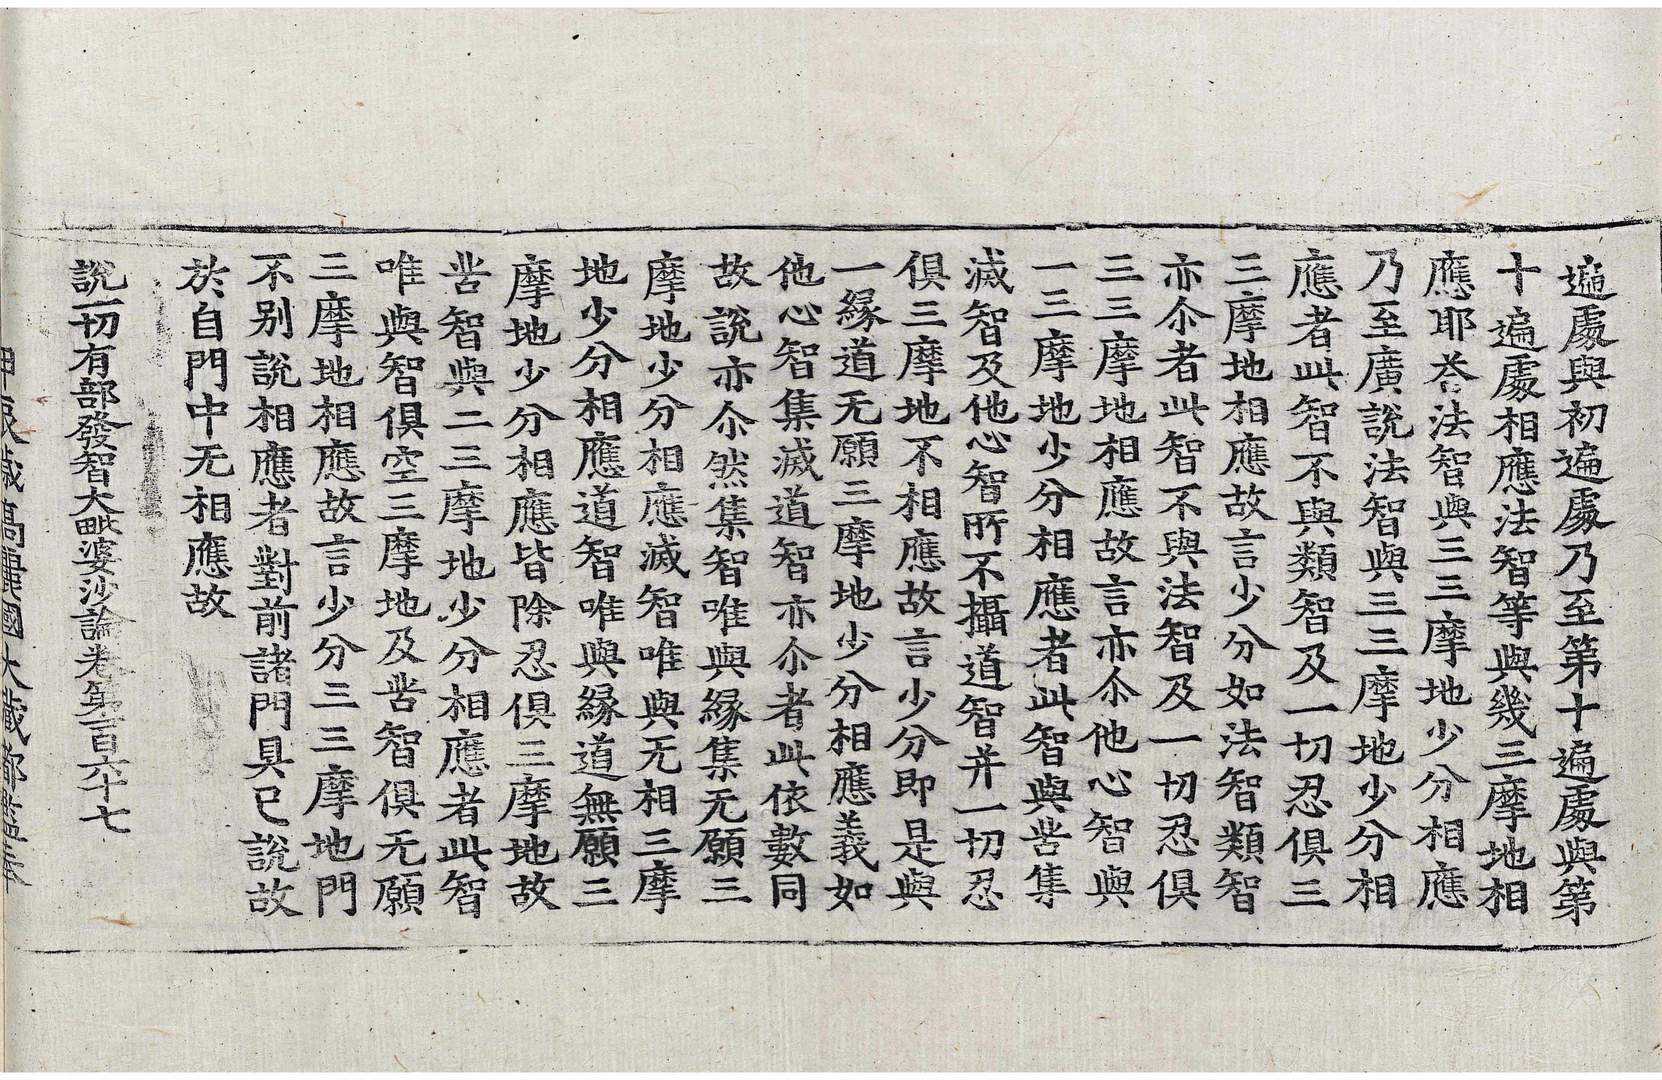 遍處與初遍處乃至第十遍處與第
十遍處相應法智等與幾三摩地相
應耶荅法智與三三摩地少分相應
乃至廣說法智與三三摩地少分相
應者此智不與類智及一切忍俱三
三摩地相應故言少分如法智類智
亦尒者此智不與法智及一切忍俱
三三摩地相應故言亦尒他心智與
一三摩地少分相應者此智與苦集
滅智及他心智所不攝道智并一切忍
俱三摩地不相應故言少分即是與
一緣道无願三摩地少分相應義如
他心智集滅道智亦尒者此依數同
故說亦尒然集智唯與緣集无願三
摩地少分相應滅智唯與无相三摩
地少分相應道智唯與緣道無願三
摩地少分相應皆除忍俱三摩地故
苦智與二三摩地少分相應者此智
唯與智俱空三摩地及苦智俱无願
三摩地相應故言少分三三摩地門
不別說相應者對前諸門具已說故
於自門中无相應故
說一切有部發智大毗婆沙論卷第一百六十七
歲高麗國大藏都監奉